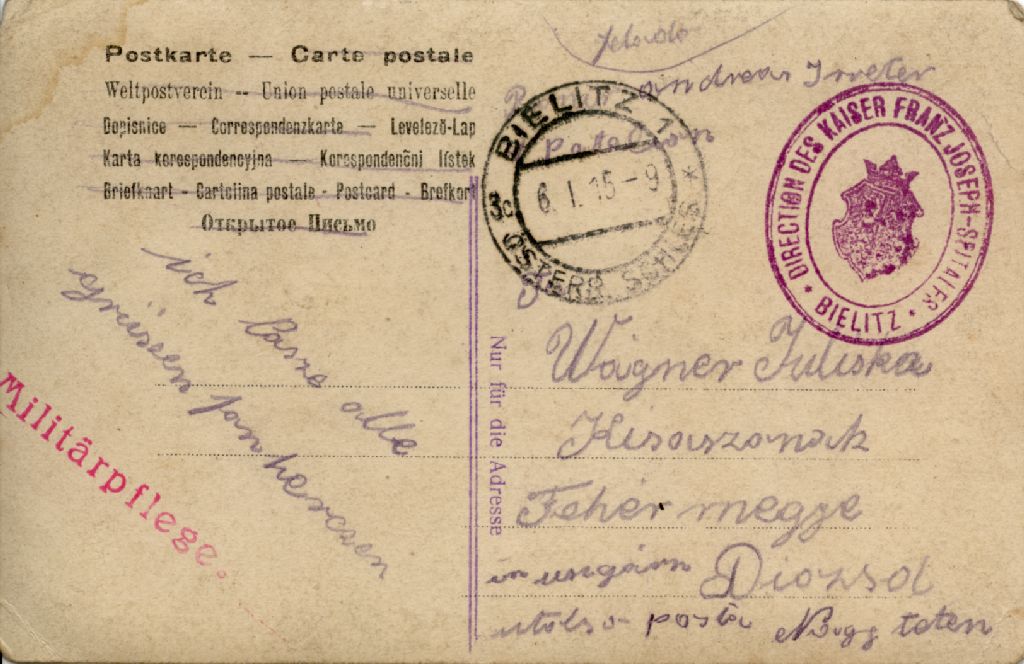 Postkarte — Carte postale
Weltpostverein -- Union postale universelle
Dopisnice — Correspondenzkarte — Levelező-Lap
Karta korespondencyjna — Korespondenční lístek
Briefkaart - Cartolina postale - Postcard - Brefkort
Открытое Письмо
feladó
andreas
BIELITZ 1
6. I. 15 - 9
3c ÖSTERR. SCHLES *
DIRECTION DES KAISER FRANZ JOSEPH-SPITALES
* BIELITZ *
ich lasze alle
grüssen fon herczen
Militärpflege.
Nur für die Adresse
Wágner Juliska
Kisaszonak
Fehér megye
in ungárn Diozsd
utolso posta Nagy teten